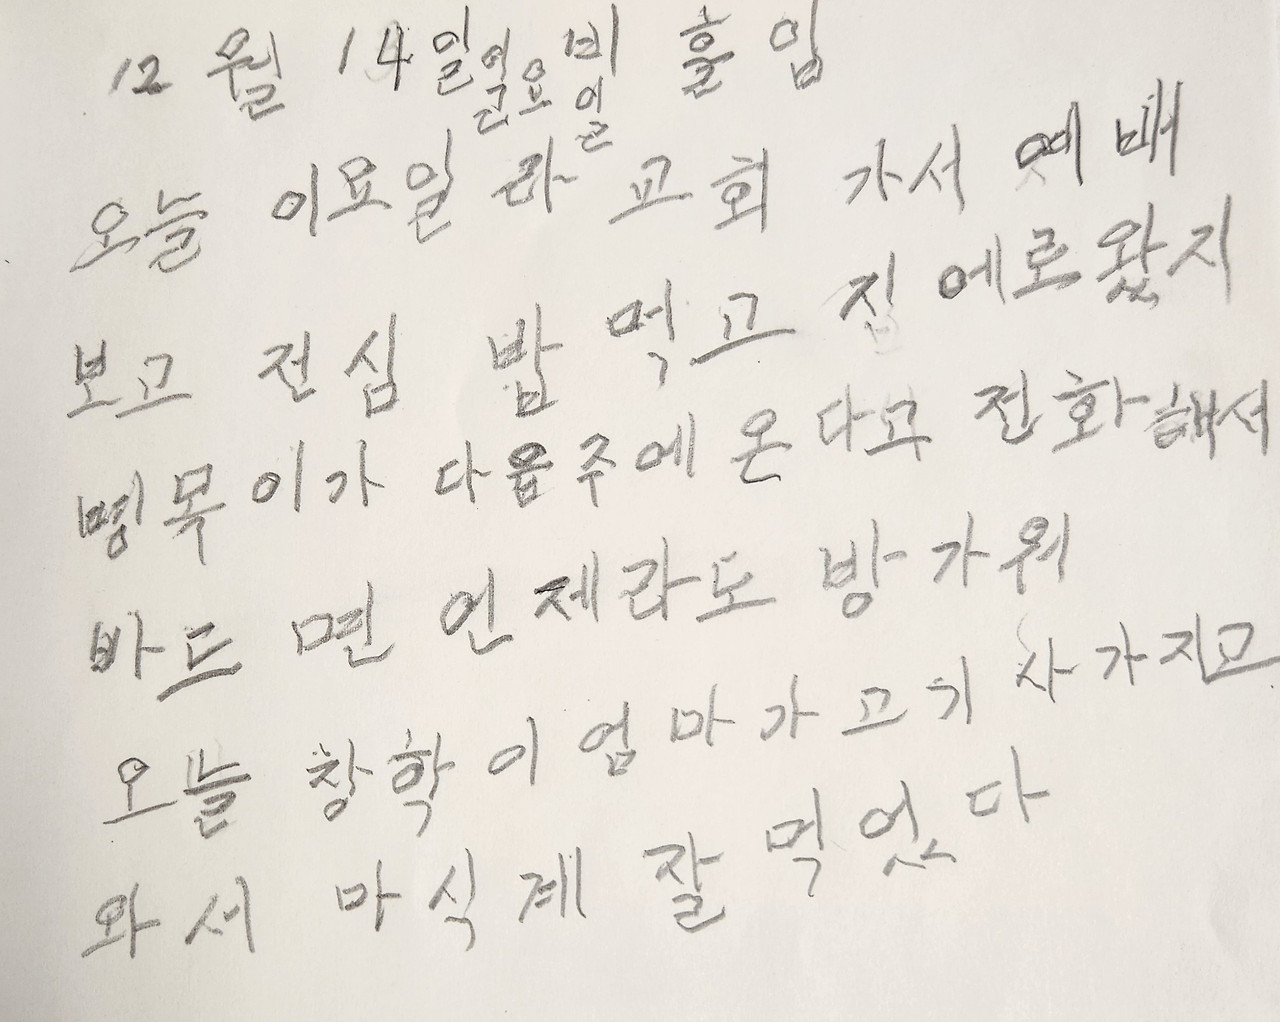 12 월 14 일 일요일 비 흘임
오늘 이요일 라 교회 가서 예배
보고 전심 밥 먹고 집 에로왔지
명목이가 다음주에 온다고 전화해서
바드면 언제라도 방가워
오늘 창학이 엄마가 고기 사가지고
와서 마식게 잘 먹었다